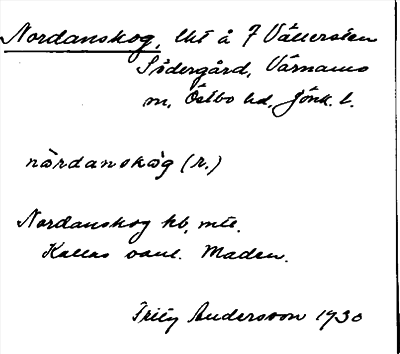 Nordanskog, lht å 7 Vällersten
Södergård, Värnamo
m, Östbo hd, Jönk. l.
nò̀rdanskò̀g (r.)
Nordanskog hb, mtl.
Kallas vanl. Maden.
Fritz Andersson 1930